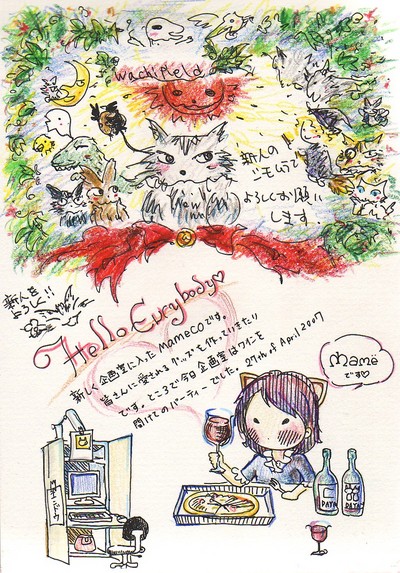 Wachifield
新人の
ジモムリで
よろしくお願い
します!
New
新人を
よろしく!!
Hello Everybody
新しく企画室に入ったmamecoです。
皆さんに愛されるグッズを作っていきたい
です。ところで今日企画室はワインを
開けてのパーティーでした。27th of April 2007
mame
です
DAYA
DAYA